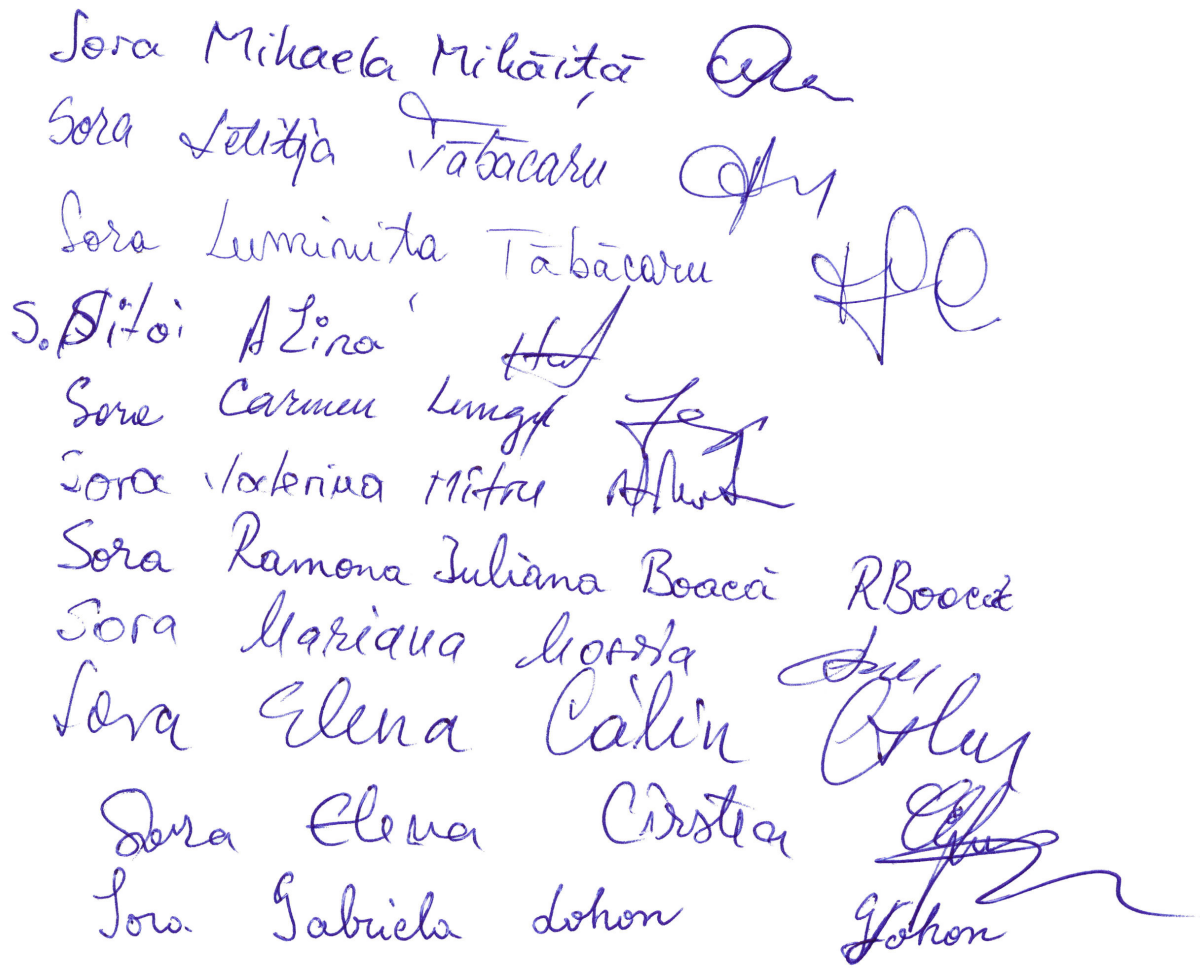 Sora Mihaela Mihăiță
Sora Letiția Tăbăcaru
Sora Luminița Tăbăcaru
S. Nițoi Alina
Sora Carmen Lungu
Sora Valerina Mitru
Sora Ramona Iuliana Boacă RBoacă
Sora Mariana
Sora Elena Călin
Sora Elena Cîrstea
Sora Gabriela Lohon GLohon